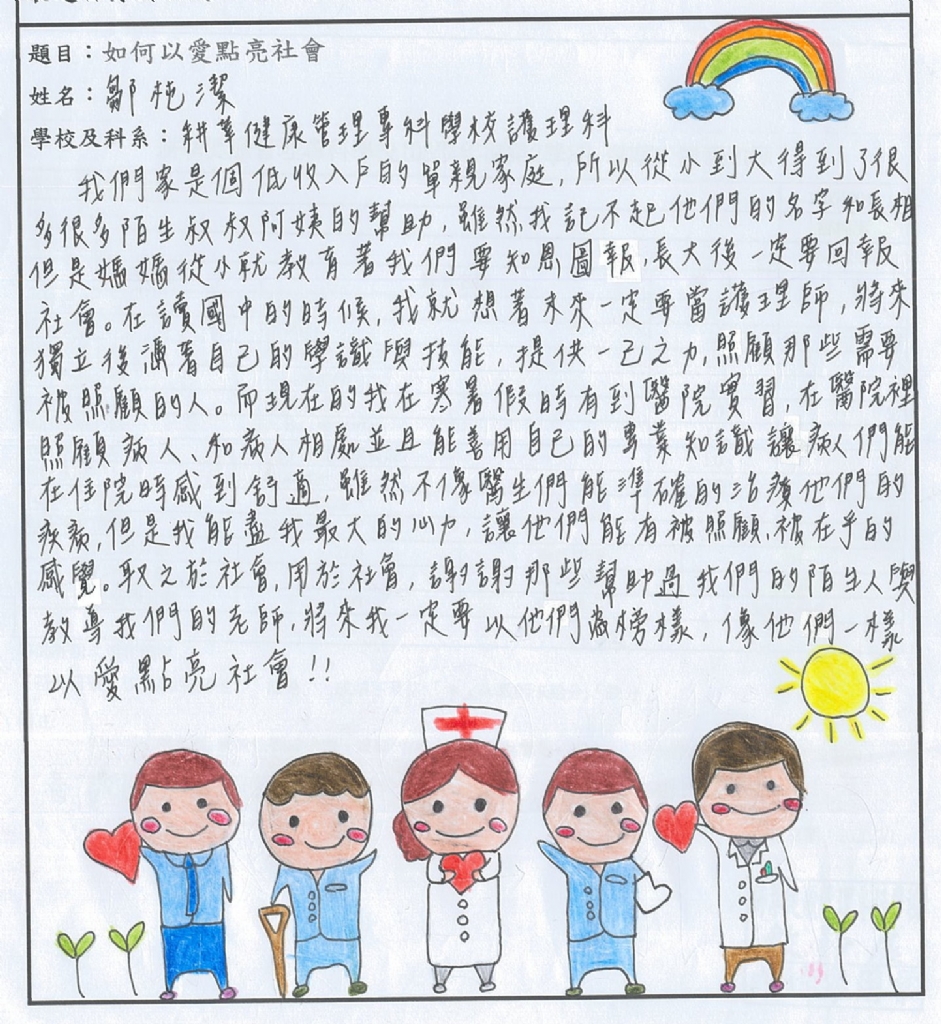 題目：如何以愛點亮社會
姓名：鄒 潔
學校及科系：耕莘健康管理專科學校護理科
我們家是個低收入戶的單親家庭，所以從小到大得到了很
多很多陌生叔叔阿姨的幫助，雖然我記不起他們的名字和長相
但是媽媽從小就教育著我們要知恩圖報，長大後一定要回報
社會。在讀國中的時候，我就想著未來一定要當護理師，將來
獨立後憑著自己的學識與技能，提供一己之力，照顧那些需要
被照顧的人。而現在的我在寒暑假時有到醫院實習，在醫院裡
照顧病人、和病人相處並且能善用自己的專業知識讓病人們能
在住院時感到舒適，雖然不像醫生們能準確的治療他們的
疾病，但是我能盡我最大的心力，讓他們能有被照顧、被在乎的
感覺。取之於社會，用於社會，謝謝那些幫助過我們的陌生人與
教導我們的老師，將來我一定要以他們為榜樣，像他們一樣
以愛點亮社會!!